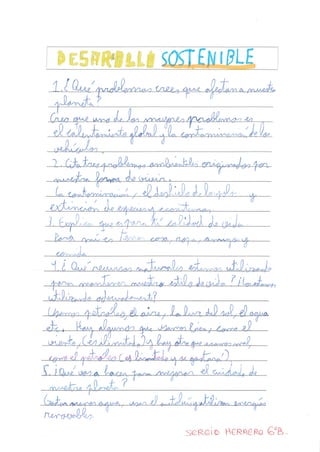 DESARROLLO SOSTENIBLE
1. ¿Qué problemas crees que afectan a nuestro
planeta?
Creo que uno de los mayores problemas es
el calentamiento global y la contaminación de los
vehículos.
2. Cita tres problemas ambientales originados por
nuestra forma de vivir.
La contaminación, el deshielo de los polos y
extinción de especies y ecosistemas.
3. Explica que es para ti calidad de vida
Para mi es tener casa, ropa, amigos y
comida
4. ¿Qué recursos naturales estamos utilizando
para mantener nuestro estilo de vida? ¿Los estamos
utilizando adecuadamente?
Usamos petroleo, el aire, la luz del sol, el agua
etc. Hay algunos que usamos bien, como el
viento, (es ilimitado) y hay otro que usamos mal,
como el petroleo (es limitado y se gastara).
5. ¿Qué vas a hacer para mejorar el cuidado de
nuestro planeta?
Gastar menos agua, usar el autobús y utilizar energías
renovables
SERGIO HERRERO 6ºB.